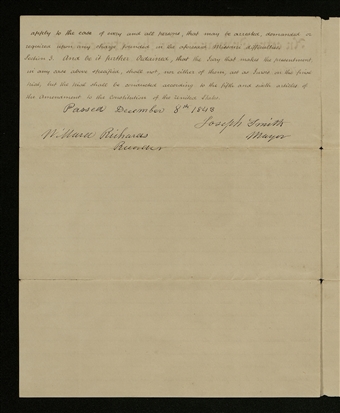 apply to the case of every and all persons, that may be arrested, demanded or
required upon any charge founded in the aforesaid Missouri difficulties
Section 3. And be it further Ordained, that the Jury that makes the presentment,
in any case above specified, shall not, nor either of them, act as Jurors in the final
trial; but the trial shall be conducted according to the fifth and sixth articles of
the amendment to the Constitution of the United States.
Passed December 8th 1843
Joseph Smith
Mayor
Willard Richards
Recorder